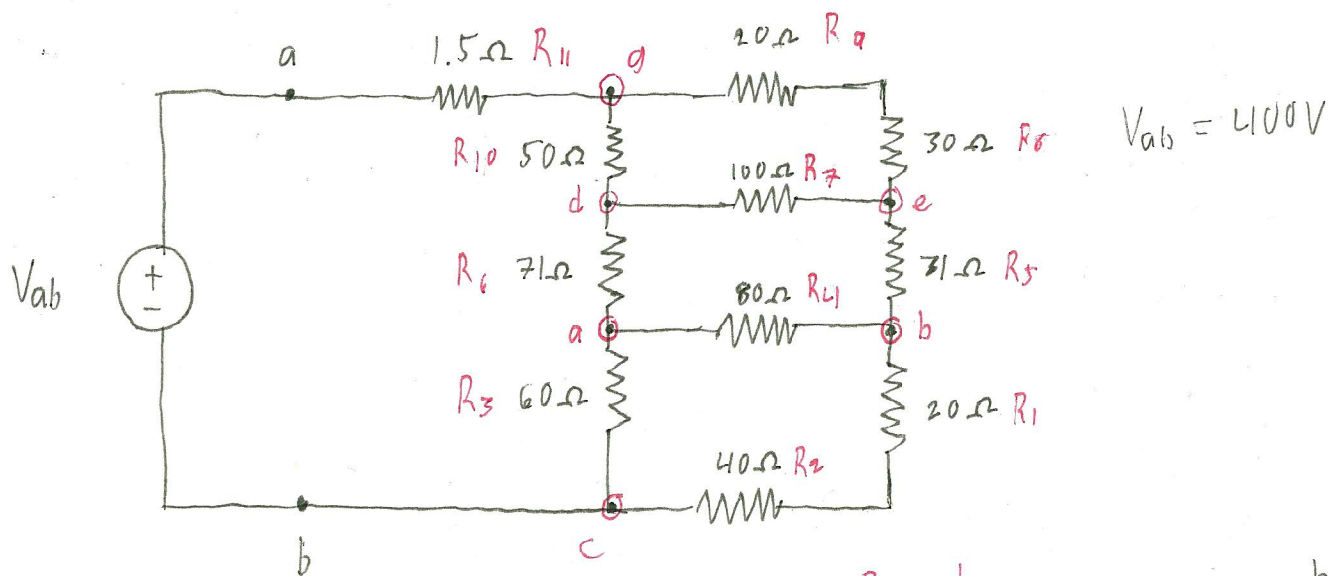 a
1.5Ω R11
g
20Ω R9
Vab = 400V
R10 50Ω
30Ω R8
100Ω R7
d
e
Vab
+
−
R6 71Ω
31Ω R5
80Ω R4
a
b
R3 60Ω
20Ω R1
40Ω R2
b
c